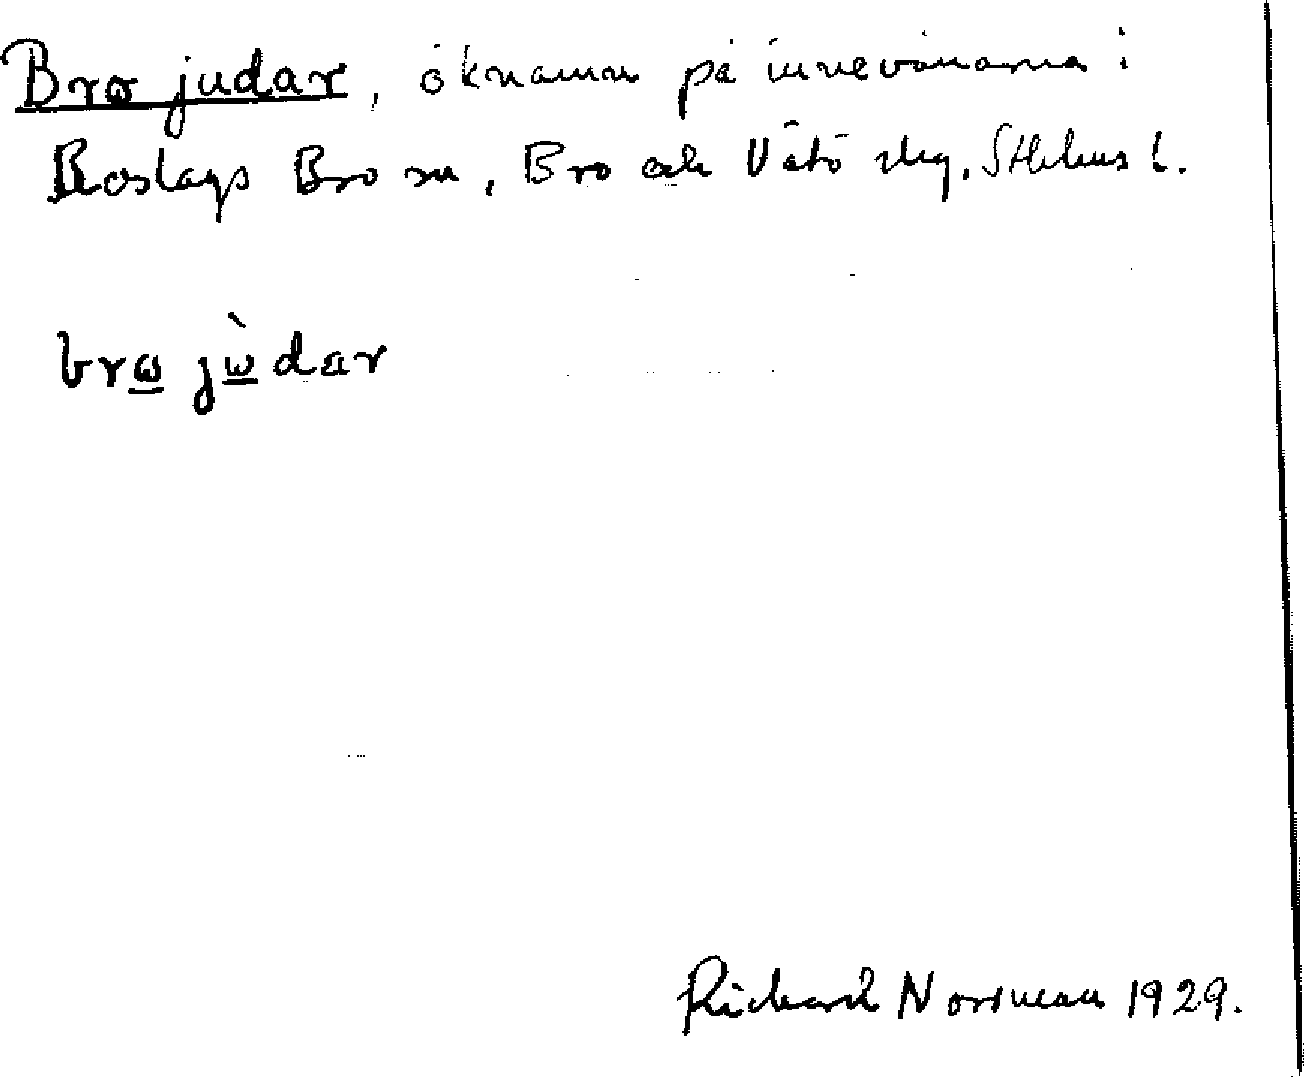 Bro judar, öknamn på innevånarna i
Roslags Bro sn, Bro och Vätö skg, Sthlms l.
brɷ jɷ̀dar
Richard Norrman 1929.